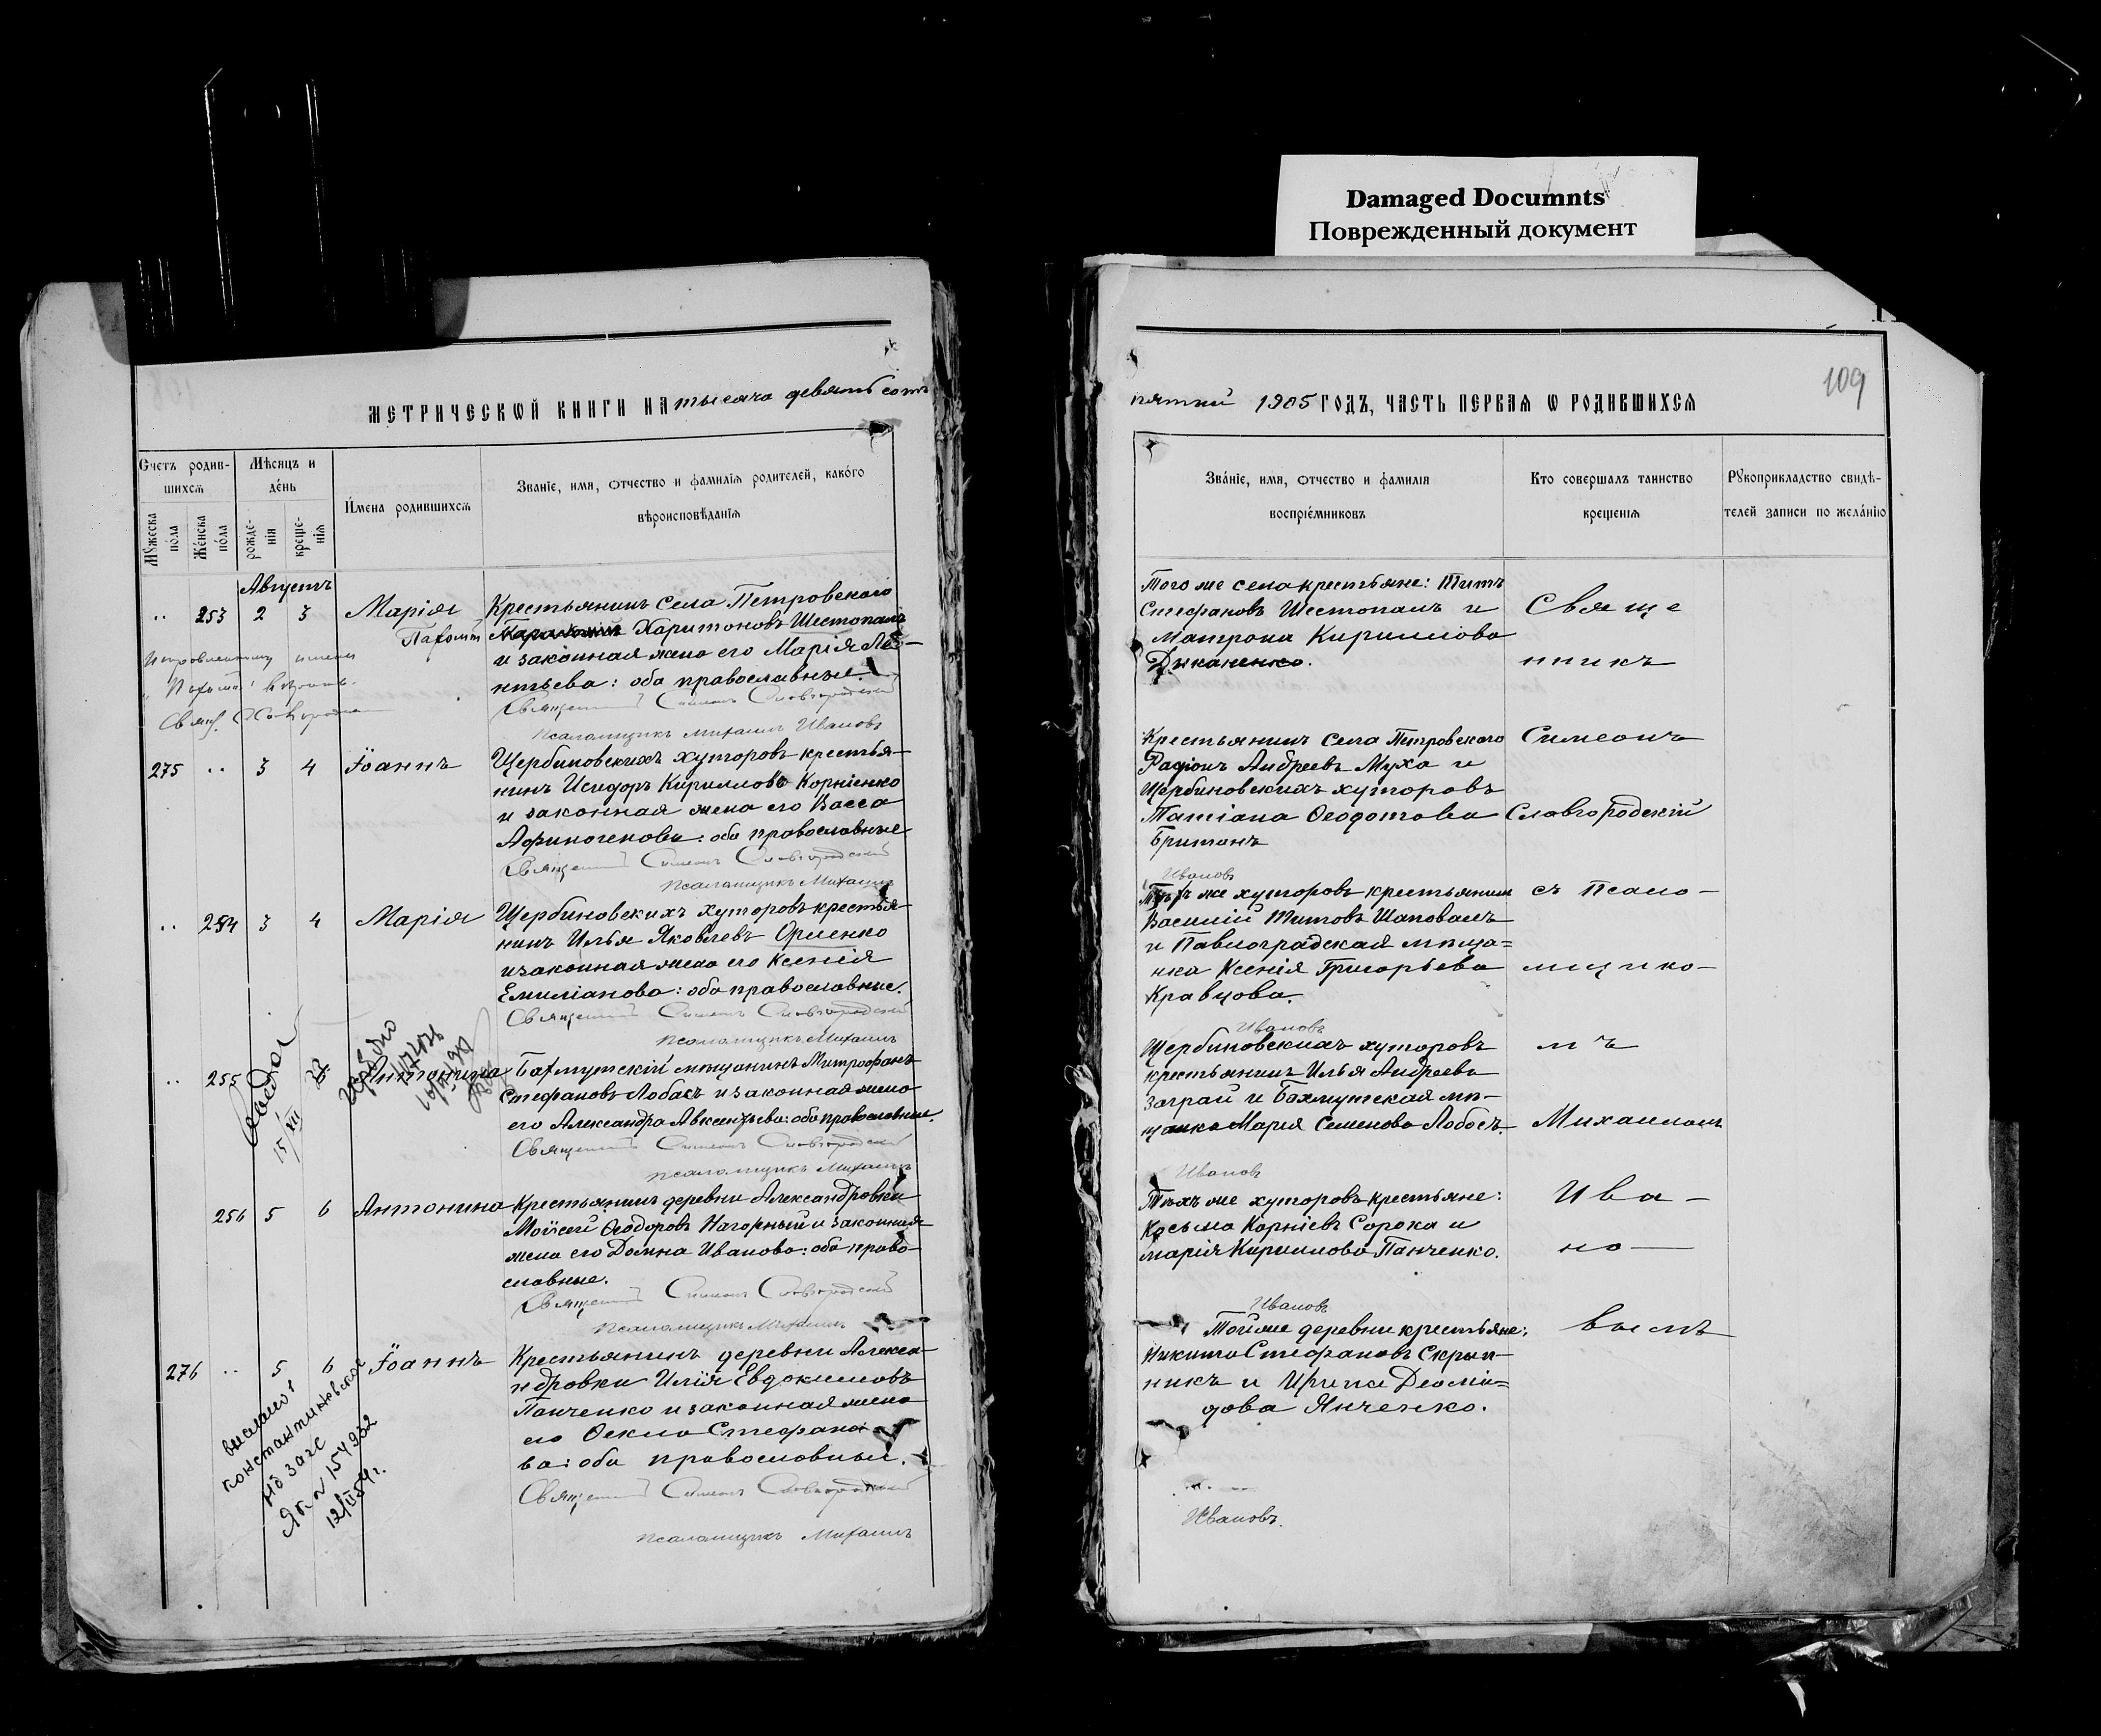 Damaged Documnts
Поврежденный документ
МЕТРИЧЕСКѠЙ КНИГИ НА тысяча девятьсотъ
Счетъ родив-
шихсѧ
Мѣсяцъ и
де́нь
И́мена родившихсѧ
Званїе, имя, ѻтчество и фамилїя родителей, како́го
вѣроисповѣданїя
Мꙋжеска
по́ла
Же́нска
по́ла
рожде-
нїя
креще-
нїя
Августъ
.. 253 2 3 Марія
Крестьянинъ села Петровскаго
Пахомій
Харитоновъ Шестопалъ
и законная жена его Марія Ле-
нтьева: оба православные.
Священникъ Симеонъ Славгородскій
Псаломщикъ Михаилъ Ивановъ
275 .. 3 4 Їоаннъ
Щербиновскихъ хуторовъ крестья-
нинъ Исидоръ Кирилловъ Корніенко
и законная жена его Васса
Афиногенова: оба православные
Священникъ Симеонъ Славгородскій
Псаломщикъ Михаилъ
.. 254 3 4 Марія
Щербиновскихъ хуторовъ крестья-
нинъ Илья Яковлевъ Орленко
и законная жена его Ксенія
Емиліанова: оба православные.
Священникъ Симеонъ Славгородскій
Псаломщикъ Михаилъ
.. 255 Антонина
Бахмутскій мѣщанинъ Митрофанъ
Стефановъ Лобасъ и законная жена
его Александра Авксентьева: оба православные.
Священникъ Симеонъ Славгородскій
Псаломщикъ Михаилъ
15/XII
256 5 6 Антонина
Крестьянинъ деревни Александровки
Моѵсей Ѳеодоровъ Нагорный и законная
жена его Домна Иванова: оба право-
славные.
Священникъ Симеонъ Славгородскій
Псаломщикъ Михаилъ
276 .. 5 6 Їоаннъ
Крестьянинъ деревни Алекса-
ндровки Илїя Евдокимовъ
Панченко и законная жена
его Ѳекла Стефано-
ва: оба православные.
Священникъ Симеонъ Славгородскій
Псаломщикъ Михаилъ
выслано в
константиновское
ЗАГС
154932
109
пятый 1905 ГОДЪ, ЧАСТЬ ПЕРВАЯ Ѡ РОДИВШИХСЯ
Зва́нїе, имя, ѻтчество и фамилїя
воспрїе́мниковъ
Кто совершалъ таинство
крещенїя
Рꙋкоприкладство свидѣ-
телей записи по жела́нїю
Того же села крестьяне: Титъ
Стефановъ Шестопалъ и
Матрона Кириллова
Дыканенко.
Крестьянинъ села Петровскаго
Радіонъ Андреевъ Муха и
Щербиновскихъ хуторовъ
Татіана Ѳеодотова
Бритонъ
Ивановъ
Тѣхъ же хуторовъ крестьянинъ
Василій Титовъ Шаповалъ
и Павлоградская мѣща-
нка Ксенія Григорьева
Кравцова.
Ивановъ
Щербиновскихъ хуторовъ
крестьянинъ Илья Андреевъ
Заграй и Бахмутская мѣ-
щанка Марія Семенова Лобосъ.
Ивановъ
Тѣхъ же хуторовъ крестьяне:
Косьма Корніевъ Сорока и
Марія Кириллова Панченко.
Ивановъ
Той же деревни крестьяне:
Никита Стефановъ Скрып-
никъ и Ирина Діоми-
дова Янченко.
Ивановъ.
Свяще
нникъ
Симеонъ
Славгородскій
съ Псало-
мщико-
мъ
Михаиломъ
Ива-
но-
вымъ